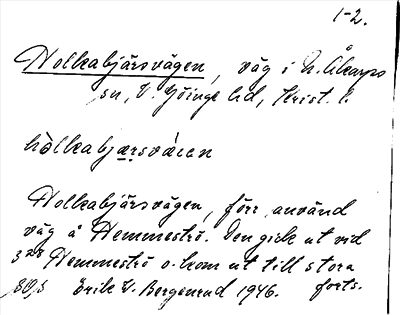 1-2.
Holkabjärsvägen, väg i N. Åkarps
sn, V. Göinge hd, Krist. l.
hòlkabjærsváien
Holkabjärsvägen, förr använd
väg å Hemmeströ. Den gick ut vid
3²⁸ Hemmeströ o. kom ut till stora
80,3 Erik V. Bergenrud 1946. forts.